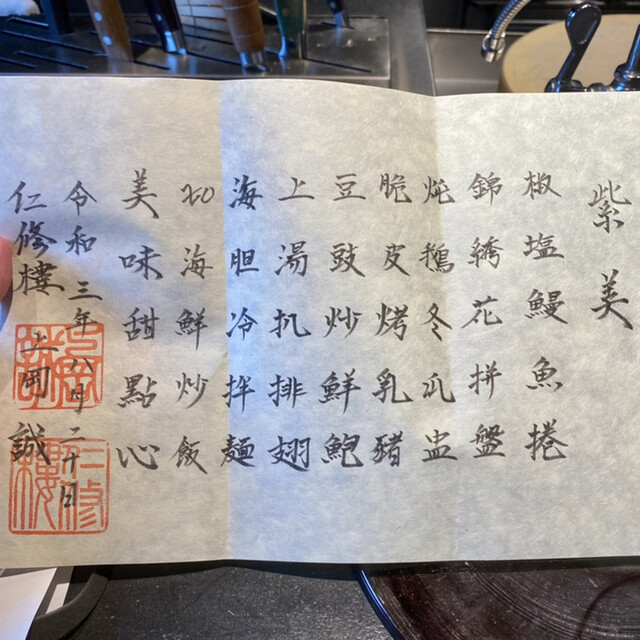 紫美
椒塩鰻魚捲
錦繍花拼盤
炖鵝冬瓜盅
脆皮烤乳豬
豆豉炒鮮鮑
上湯扒排翅
海胆冷拌麺
XO海鮮炒飯
美味甜點心
令和三年八月二十日
仁修樓 上岡誠
仁修樓